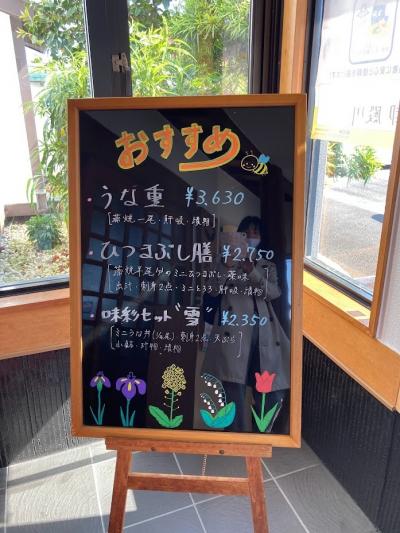 おすすめ
・うな重 ¥3.630
[蒲焼一尾・肝吸・漬物]
・ひつまぶし膳 ¥2.750
[蒲焼半尾分のミニひつまぶし・薬味・
出汁・刺身2点・ミニもろろ・肝吸・漬物]
・味彩セット"雪" ¥2.350
[ミニうな丼(1/4尾)・刺身2点・天ぷら
小鉢・汁物・漬物]
御殿川